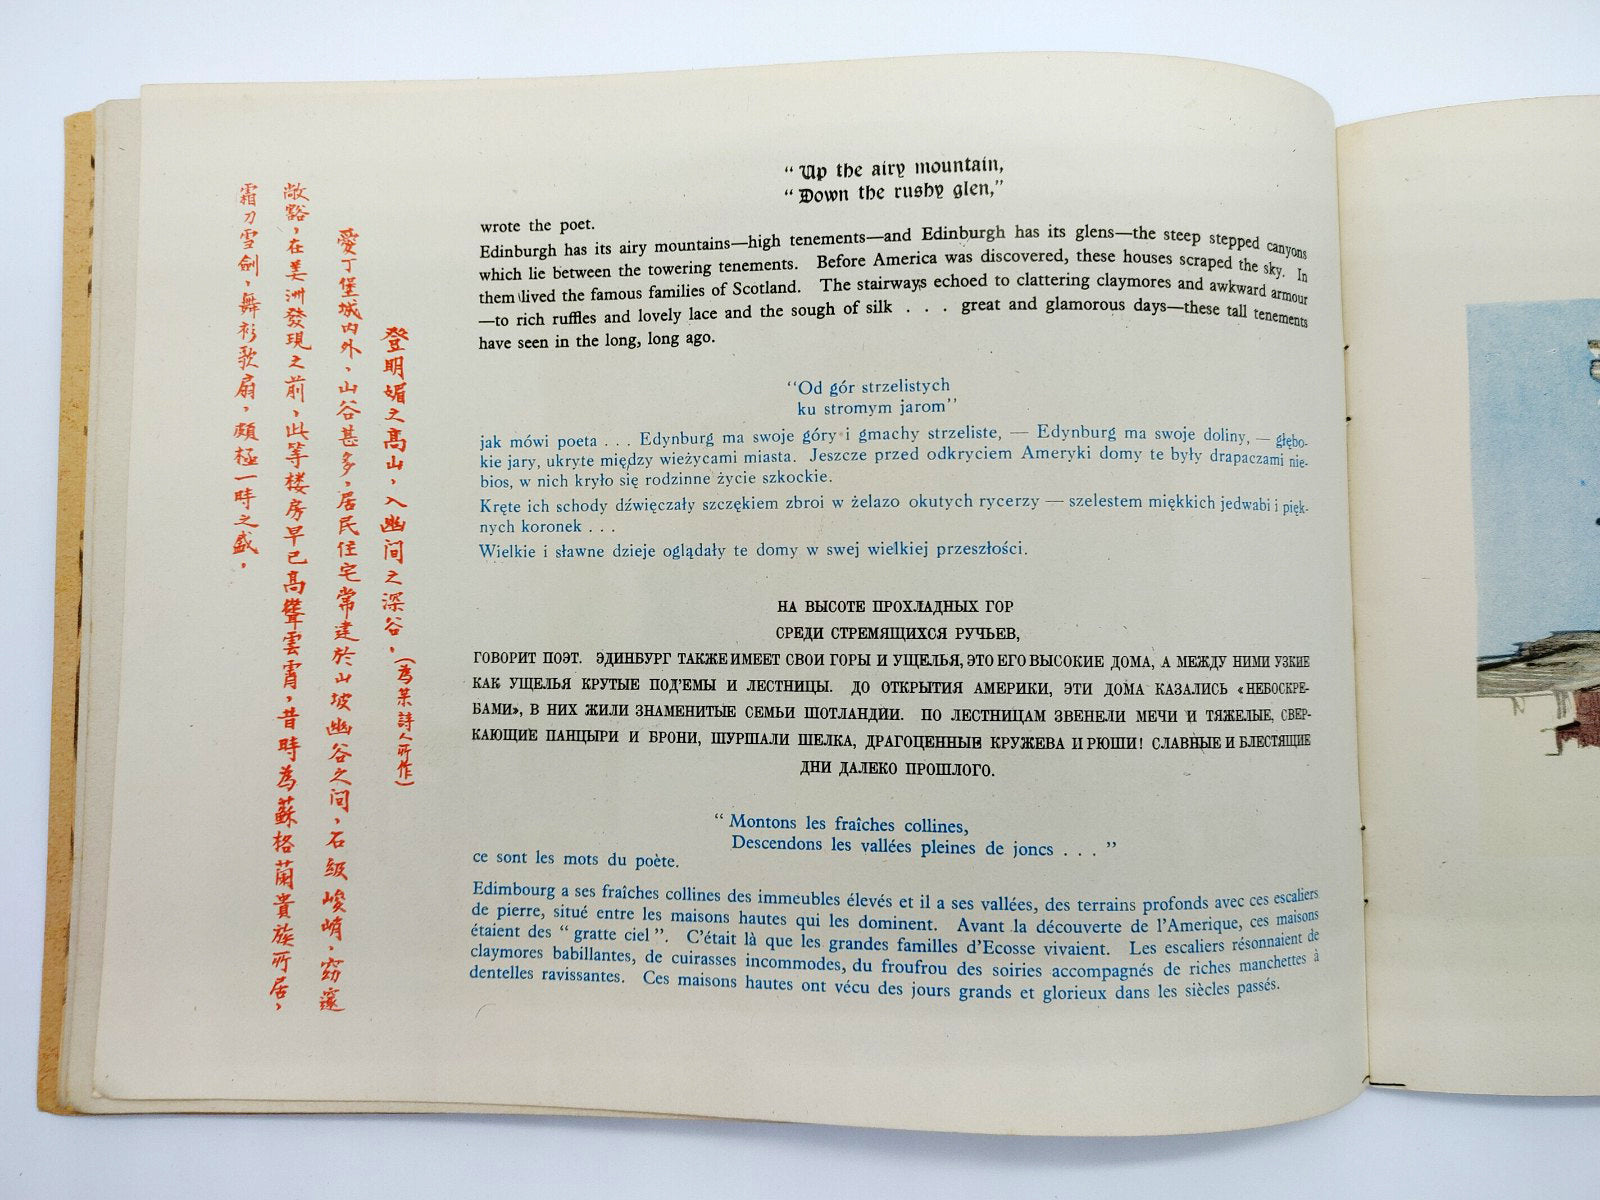 “Up the airy mountain,
“Down the rushy glen,”
wrote the poet.
Edinburgh has its airy mountains—high tenements—and Edinburgh has its glens—the steep stepped canyons
which lie between the towering tenements. Before America was discovered, these houses scraped the sky. In
them lived the famous families of Scotland. The stairways echoed to clattering claymores and awkward armour
—to rich ruffles and lovely lace and the sough of silk . . . great and glamorous days—these tall tenements
have seen in the long, long ago.
“Od gór strzelistych
ku stromym jarom”
jak mówi poeta . . . Edynburg ma swoje góry i gmachy strzeliste, — Edynburg ma swoje doliny, — głębo-
kie jary, ukryte między wieżycami miasta. Jeszcze przed odkryciem Ameryki domy te były drapaczami nie-
bios, w nich kryło się rodzinne życie szkockie.
Kręte ich schody dźwięczały szczękiem zbroi w żelazo okutych rycerzy — szelestem miękkich jedwabi i pięk-
nych koronek . . .
Wielkie i sławne dzieje oglądały te domy w swej wielkiej przeszłości.
НА ВЫСОТЕ ПРОХЛАДНЫХ ГОР
СРЕДИ СТРЕМЯЩИХСЯ РУЧЬЕВ,
ГОВОРИТ ПОЭТ. ЭДИНБУРГ ТАКЖЕ ИМЕЕТ СВОИ ГОРЫ И УЩЕЛЬЯ, ЭТО ЕГО ВЫСОКИЕ ДОМА, А МЕЖДУ НИМИ УЗКИЕ
КАК УЩЕЛЬЯ КРУТЫЕ ПОД’ЕМЫ И ЛЕСТНИЦЫ. ДО ОТКРЫТИЯ АМЕРИКИ, ЭТИ ДОМА КАЗАЛИСЬ «НЕБОСКРЕ-
БАМИ», В НИХ ЖИЛИ ЗНАМЕНИТЫЕ СЕМЬИ ШОТЛАНДИИ. ПО ЛЕСТНИЦАМ ЗВЕНЕЛИ МЕЧИ И ТЯЖЕЛЫЕ, СВЕР-
КАЮЩИЕ ПАНЦЫРИ И БРОНИ, ШУРШАЛИ ШЕЛКА, ДРАГОЦЕННЫЕ КРУЖЕВА И РЮШИ! СЛАВНЫЕ И БЛЕСТЯЩИЕ
ДНИ ДАЛЕКО ПРОШЛОГО.
“Montons les fraîches collines,
Descendons les vallées pleines de joncs . . .”
ce sont les mots du poète.
Edimbourg a ses fraîches collines des immeubles élevés et il a ses vallées, des terrains profonds avec ces escaliers
de pierre, situé entre les maisons hautes qui les dominent. Avant la découverte de l’Amerique, ces maisons
étaient des “gratte ciel”. C’était là que les grandes familles d’Ecosse vivaient. Les escaliers résonnaient de
claymores babillantes, de cuirasses incommodes, du froufrou des soiries accompagnés de riches manchettes à
dentelles ravissantes. Ces maisons hautes ont vécu des jours grands et glorieux dans les siècles passés.
登明媚之高山，入幽间之深谷，（為某詩人所作）
愛丁堡城内外，山谷甚多，居民住宅常建於山坡幽谷之间，石級峻峭，窈邃
敞豁，在美洲發現之前，此等楼房早已高聳雲霄，昔時為蘇格蘭貴族所居，
霜刀雪劍，舞衫歌扇，頗極一時之盛，